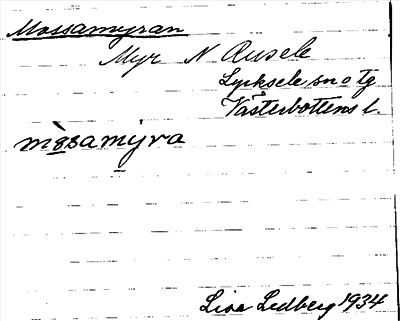 Mossamyran
Myr N Rusele
Lycksele sn o tg
Västerbottens l.
mòsamýra
Lisa Lidberg 1934